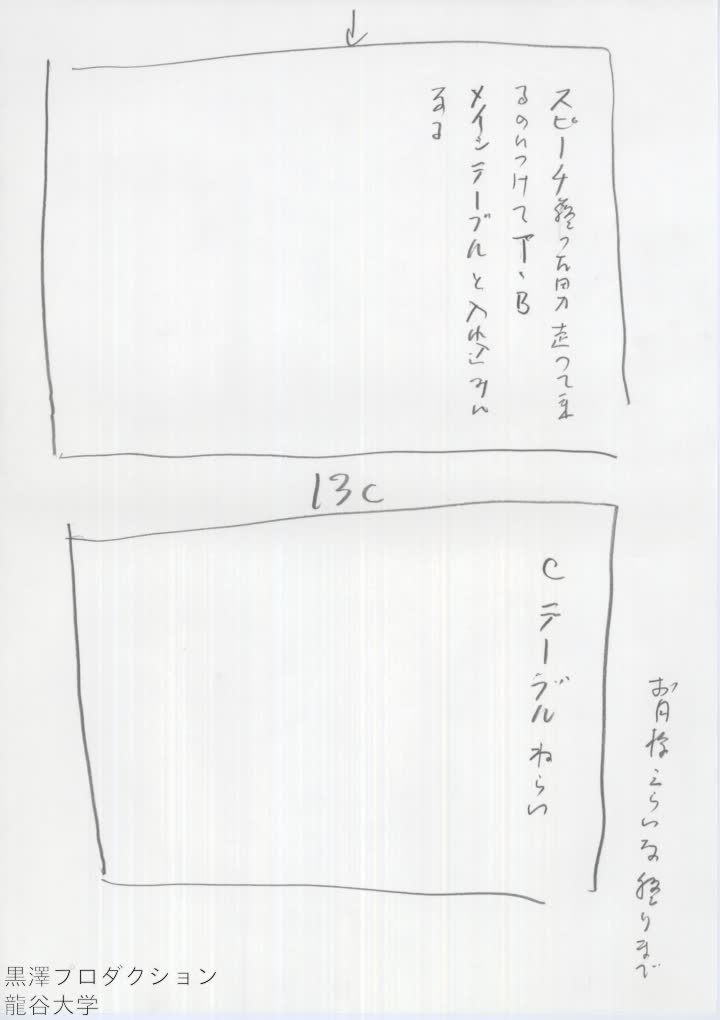 スピーチ終った男走って来
るのにつけてT、B
メインテーブルと入れ込みに
なる
13c
C テーブルねらい
お月様えらいな終りまで
黒澤プロダクション
龍谷大学